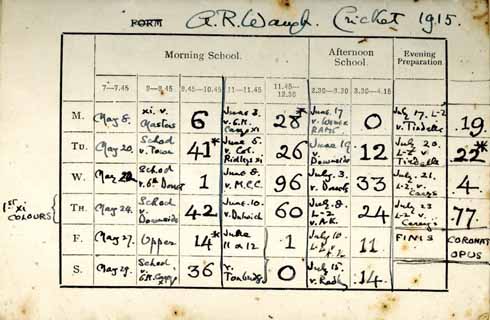 FORM A. R. Waugh. Cricket 1915.
Morning School. Afternoon School. Evening Preparation
7—7.45 9—9.45 9.45—10.45 11—11.45 11.45—12.30 2.30—3.30 3.30—4.15
M. May 8. xi. v. Masters 6 June 3. v. G.M. Carey's xi 28* June 17 v. 0 July 17. L-2 v. Tindall's 19
TU. May 20. School v. Town 41* June 6. v. Col. Ridley's xi 26 June 19 v. Downside 12 July 20. L-2 v. Tindall's 22*
W. May 22. School v. 6th 1 June 8. v. M.C.C. 96 July 3. v. 33 July 21. L-2 v. Carey's 4
1st xi COLOURS TH. May 24. School v. Downside 42 June 10. v. Dulwich 60 July 8. L-2 v. A.K. 24 July 23 L-2 v. Carey's 77
F. May 27. Upper 14* June 11 & 12 1 July 10. L-2 v. 11 FINIS CORONAT OPUS
S. May 29. School v. G.M. Carey's xi 36 v. Tonbridge 0 July 15. v. Radley 14